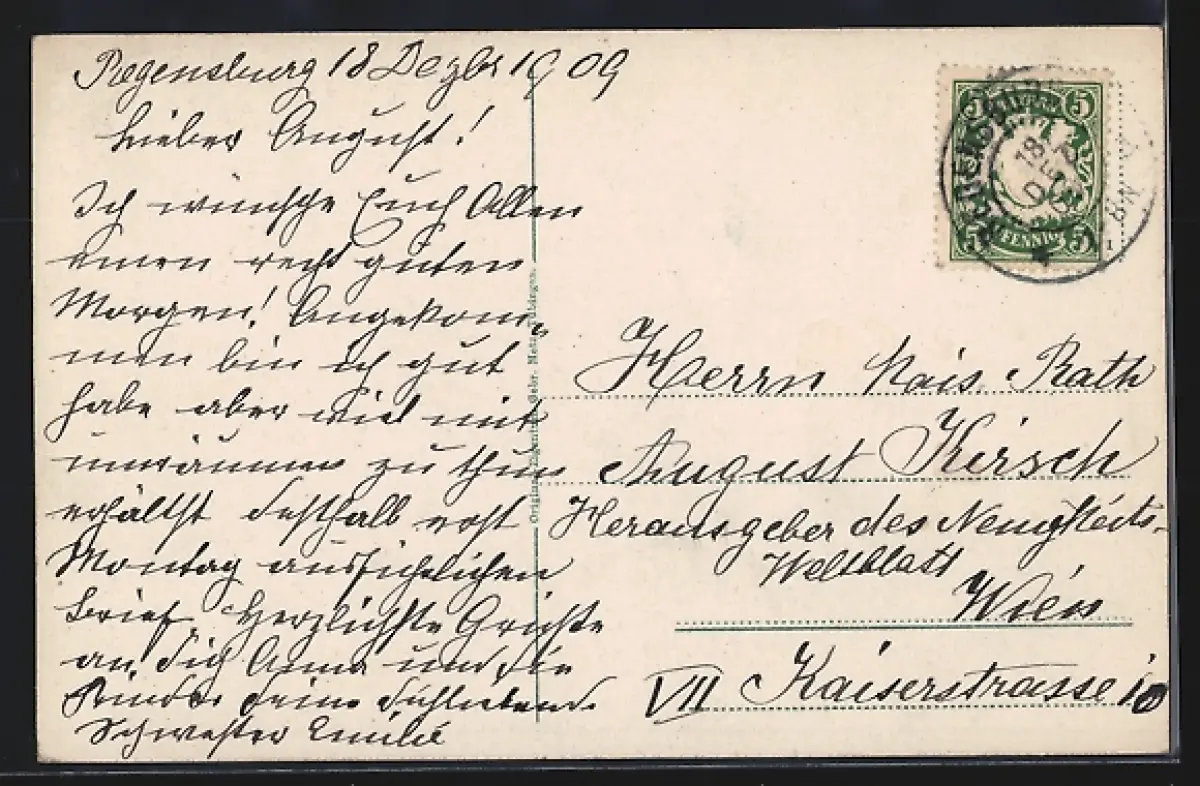 Regensburg 18 Dezbr 1909
Lieber August!
Ich wünsche Euch Allen
einen recht guten
Morgen! Angekom-
men bin ich gut
habe aber viel mit
umräumen zu thun
erhältst deshalb erst
Montag ausführlichen
Brief. Herzlichste Grüße
an Dich Anna und die
Kinder Deine Dichliebende
Schwester Emilie
Herrn Kais. Rath
August Kirsch
Herausgeber des Neuigkeits-
Weltblatt
Wien
VII Kaiserstrasse 10
5 5
PFENNIG
5 5
REGENSBURG
18 DEZ
8-9 N
Gebr. Metz, Tübingen.